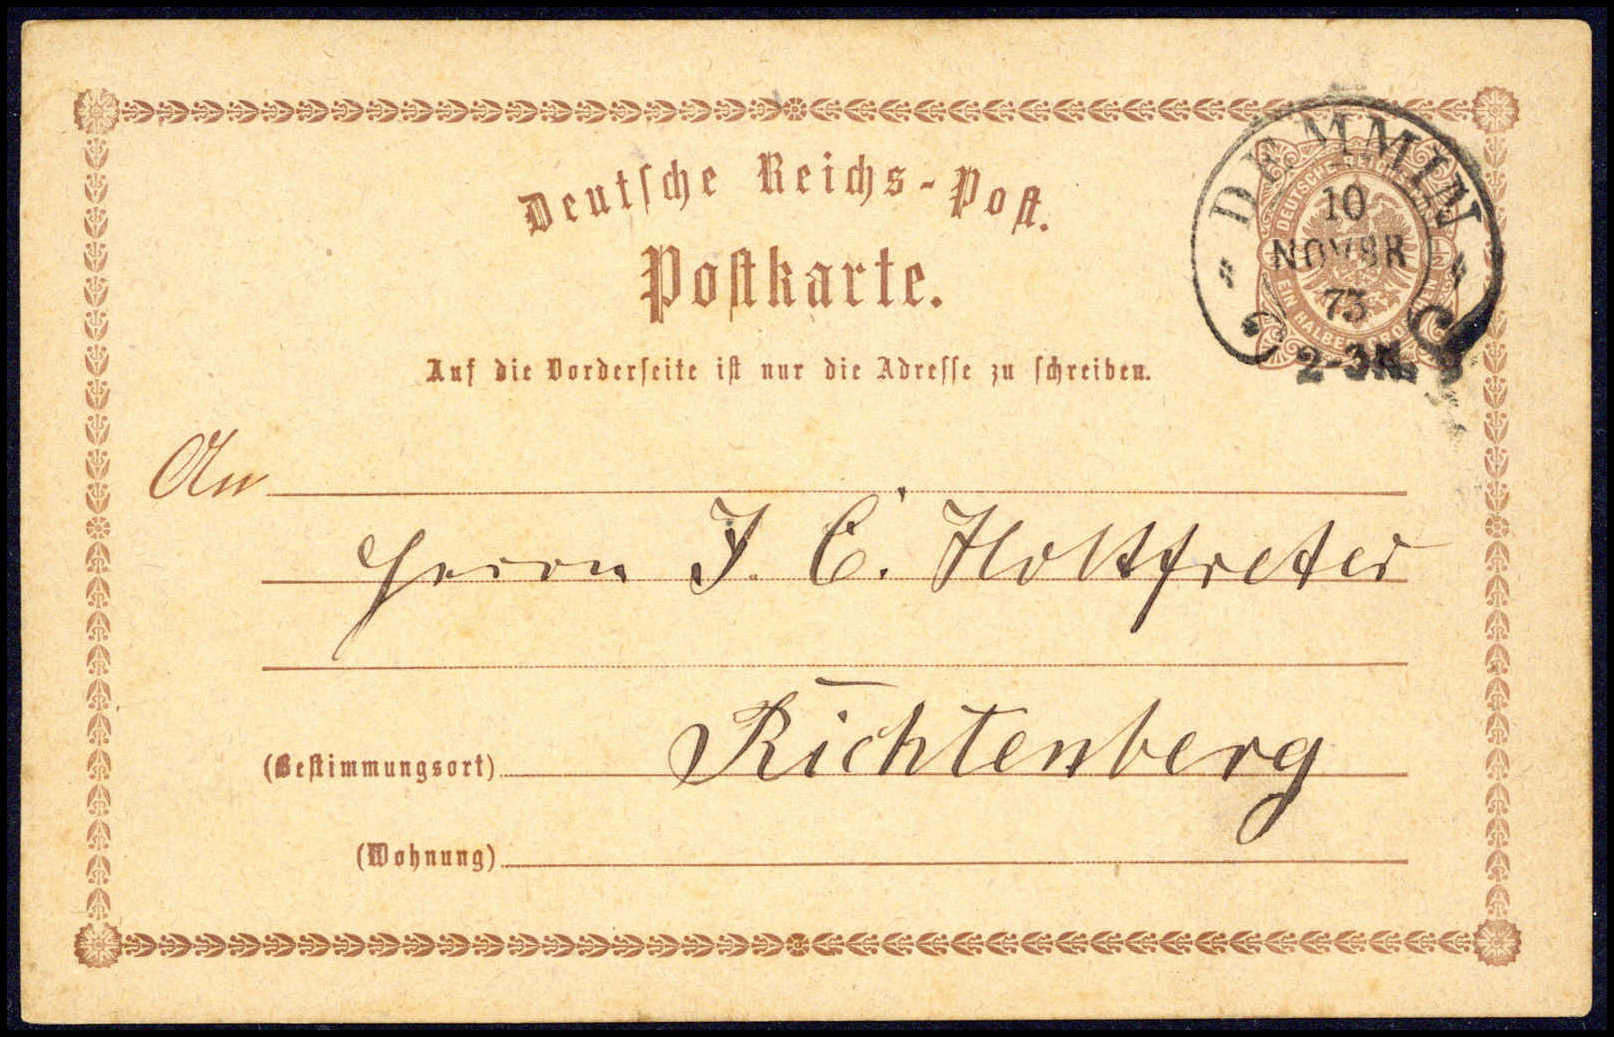 Deutsche Reichs-Post.
Postkarte.
Auf die Vorderseite ist nur die Adresse zu schreiben.
DEMMIN
10
NOVBR
73
2-3N.
DEUTSCHE REICHS
EIN HALBER
An
Herrn J. C. Holtfreter
Richtenberg
(Bestimmungsort)
(Wohnung)